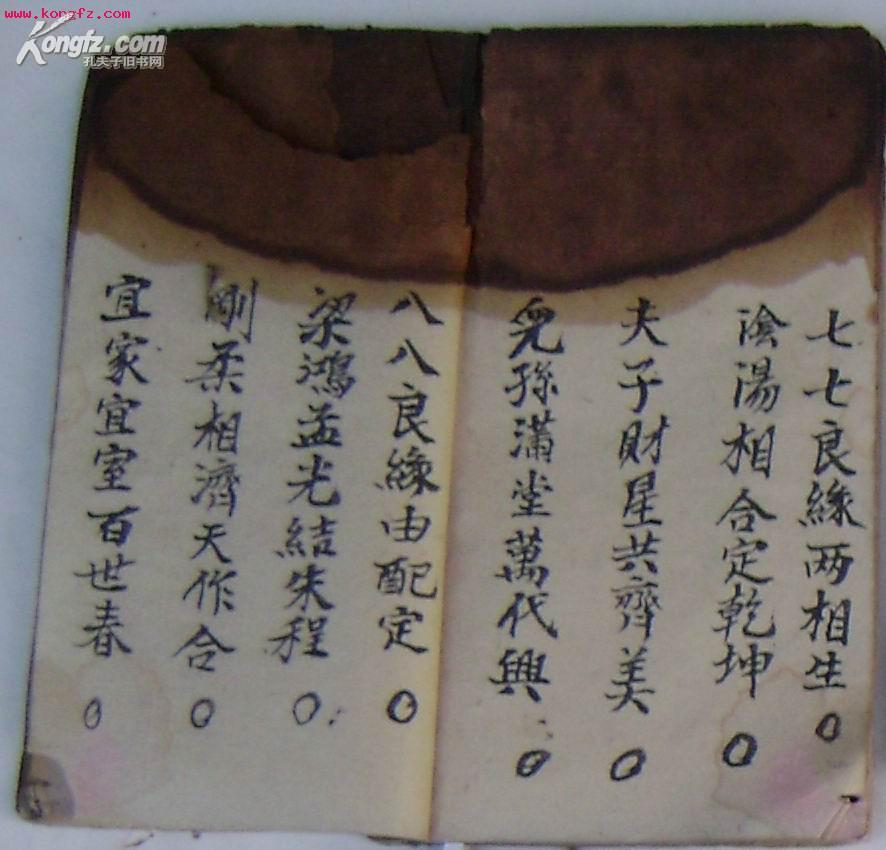 www.kongfz.com
Kongfz.com
孔夫子旧书网
七七良緣两相生○
陰陽相合定乾坤○
夫子財星共齊美○
兒孫滿堂萬代興○
八八良緣由配定○
梁鴻孟光結朱程○
剛柔相濟天作合○
宜家宜室百世春○